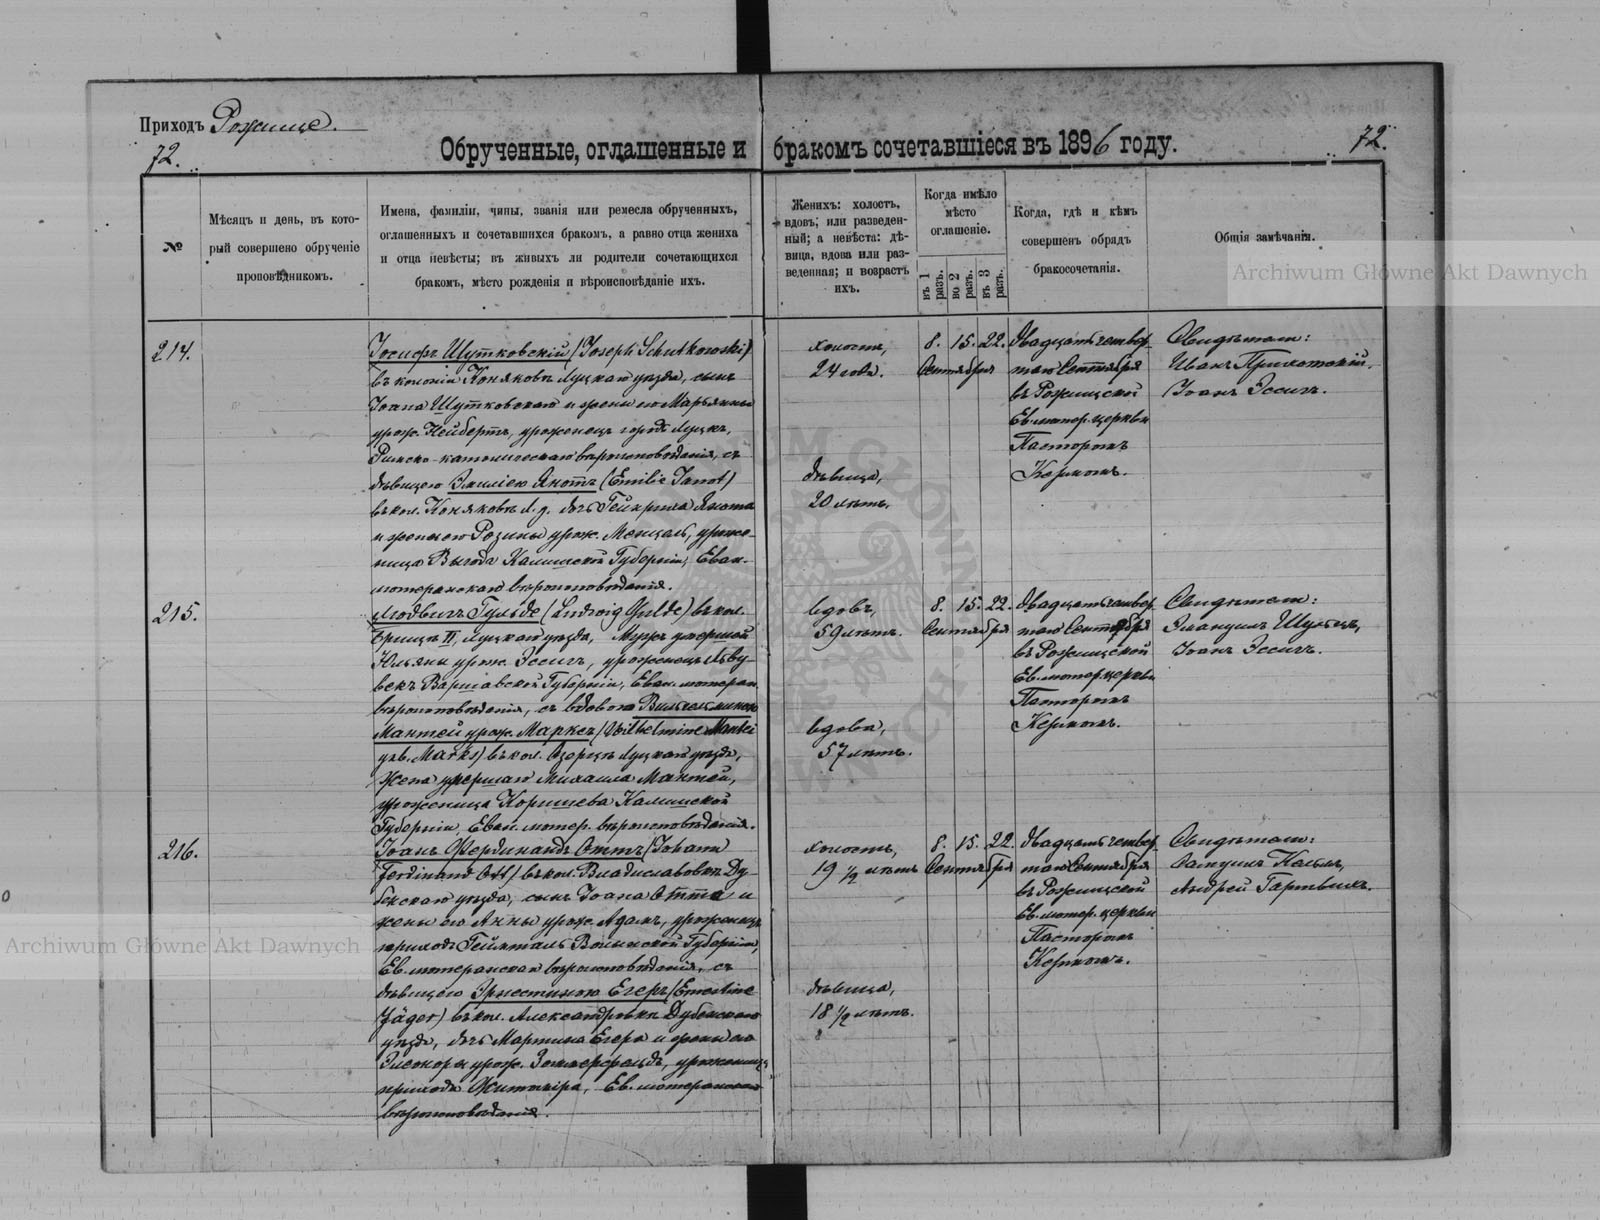 Приходъ Рожище.
72.
72.
Обрученные, оглашенные и бракомъ сочетавшіеся въ 1896 году.
№
Мѣсяцъ и день, въ кото-
рый совершено обрученіе
проповѣдникомъ.
Имена, фамиліи, чины, званія или ремесла обрученныхъ,
оглашенныхъ и сочетавшихся бракомъ, а равно отца жениха
и отца невѣсты; въ живыхъ ли родители сочетающихся
бракомъ, мѣсто рожденія и вѣроисповѣданіе ихъ.
Женихъ: холостъ,
вдовъ; или разведен-
ный; а невѣста: дѣ-
вица, вдова или раз-
веденная; и возрастъ
ихъ.
Когда имѣло
мѣсто
оглашеніе.
въ 1 разъ.
во 2 разъ.
въ 3 разъ.
Когда, гдѣ и кѣмъ
совершенъ обрядъ
бракосочетанія.
Общія замѣчанія.
Archiwum Główne Akt Dawnych
214.
Іосифъ Шутковскій (Joseph Schutkowski)
въ колоніи Коняковъ Луцкаго уѣзда, сынъ
Іоана Шутковскаго и жены его Марьянны
урож. Нейбертъ, уроженецъ города Луцкъ,
Римско-католическаго вѣроисповѣданія, съ
дѣвицею Эмиліею Янотъ (Emilie Janot)
въ кол. Коняковъ Л. у. дочь Гейнриха Янота
и жены его Розины урож. Менцель, уроже-
ница Выгода Калишской Губерніи, Еван.-
лютеранскаго вѣроисповѣданія.
холостъ,
24 года.
дѣвица,
20 лѣтъ.
8. 15. 22.
Сентября
Двадцать четвер-
таго Сентября
въ Рожищской
Ев.-лютер. церкви
Пасторомъ
Керномъ.
Свидѣтели:
Иванъ
Іоанъ Эссигъ.
215.
Людвигъ Гульде (Ludwig Gulde) въ кол.
II, Луцкаго уѣзда, Мужъ умершей
Юльяны урож. Эссигъ, уроженецъ
Варшавской Губерніи, Еван. лютеран.
вѣроисповѣданія, съ вдовою Вильгельминою
Мантей урож. Марксъ (Wilhelmine Mantei
geb. Marks) въ кол. Озерцъ Луцкаго уѣзда,
Жена умершаго Михаила Мантей,
уроженица Калишской
Губерніи, Еван. лютер. вѣроисповѣданія.
вдовъ,
59 лѣтъ.
вдова,
57 лѣтъ.
8. 15. 22.
Сентября
Двадцать четвер-
таго Сентября
въ Рожищской
Ев.-лютер. церкви
Пасторомъ
Керномъ.
Свидѣтели:
Эмануилъ Шульцъ,
Іоанъ Эссигъ.
216.
Іоанъ Фердинандъ Оттъ (Johann
Ferdinand Ott) въ кол. Владиславовкѣ Ду-
бенскаго уѣзда, сынъ Іоана Отта и
жены его Анны урож. Адамъ, уроженецъ
прихода Геймталь Волынской Губерніи,
Ев. лютеранскаго вѣроисповѣданія, съ
дѣвицею Эрнестиною Егеръ (Ernestine
Jäger) въ кол. Александровкѣ Дубенскаго
уѣзда, дочь Мартина Егера и жены его
Элеоноры урож. Зоммерфельдъ, уроженица
прихода Житоміра, Ев. лютеранскаго
вѣроисповѣданія.
холостъ,
19 1/2 лѣтъ
дѣвица,
18 1/2 лѣтъ.
8. 15. 22.
Сентября
Двадцать четвер-
таго Сентября
въ Рожищской
Ев. лютер. церкви
Пасторомъ
Керномъ.
Свидѣтели:
Андрей Гартвихъ.
Archiwum Główne Akt Dawnych